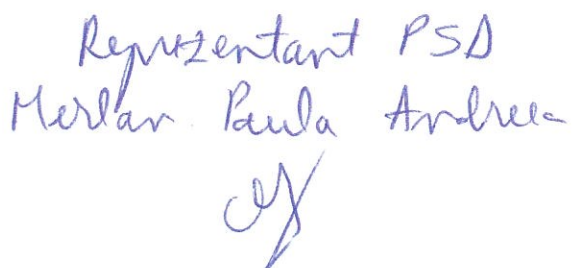 Reprezentant PSD
Merlan Paula Andreea